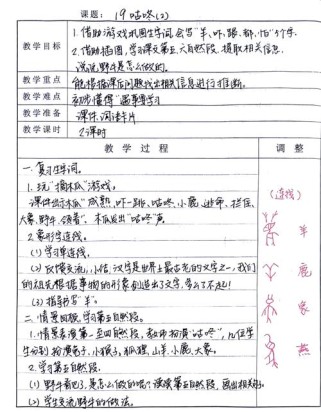 课题： 19 咕咚(2)
教学目标
1. 借助游戏巩固生字词,会写"羊、吓、跟、都、怕"个字。
2. 借助插图,学习课文第五、六自然段,提取相关信息,
说说野牛是怎么做的。
教学重点
能根据课后问题找出相关信息进行推断。
教学难点
初步懂得"遇事要
教学准备
课件、词语卡片
教学课时
2课时
教学过程
调整
一、复习生字词。
1. 玩"摘木瓜"游戏。
课件出示木瓜"成熟、吓一跳、咕咚、小鹿、逃命、拦住、
大象、野牛、领着"。木瓜发出"咕咚"声。
(连线)
2. 象形字连线。
(1) 学生连线。
羊
(2) 反馈交流,小结:汉字是世界上最古老的文字之一,我们
的祖先根据事物的形象创造出了文字,多么了不起!
鹿
(3) 指导书写"羊"。
象
二、情景回顾,学习第五自然段。
1. 情景表演第一至四自然段,教师扮演"咕咚",几位学
生分别扮演兔子、小猴子、狐狸、山羊、小鹿、大象。
燕
2. 学习第五自然段。
(1) 野牛看见了,是怎么做的呢?读读第五自然段,画出相关句子
(2) 学生交流野牛的做法。